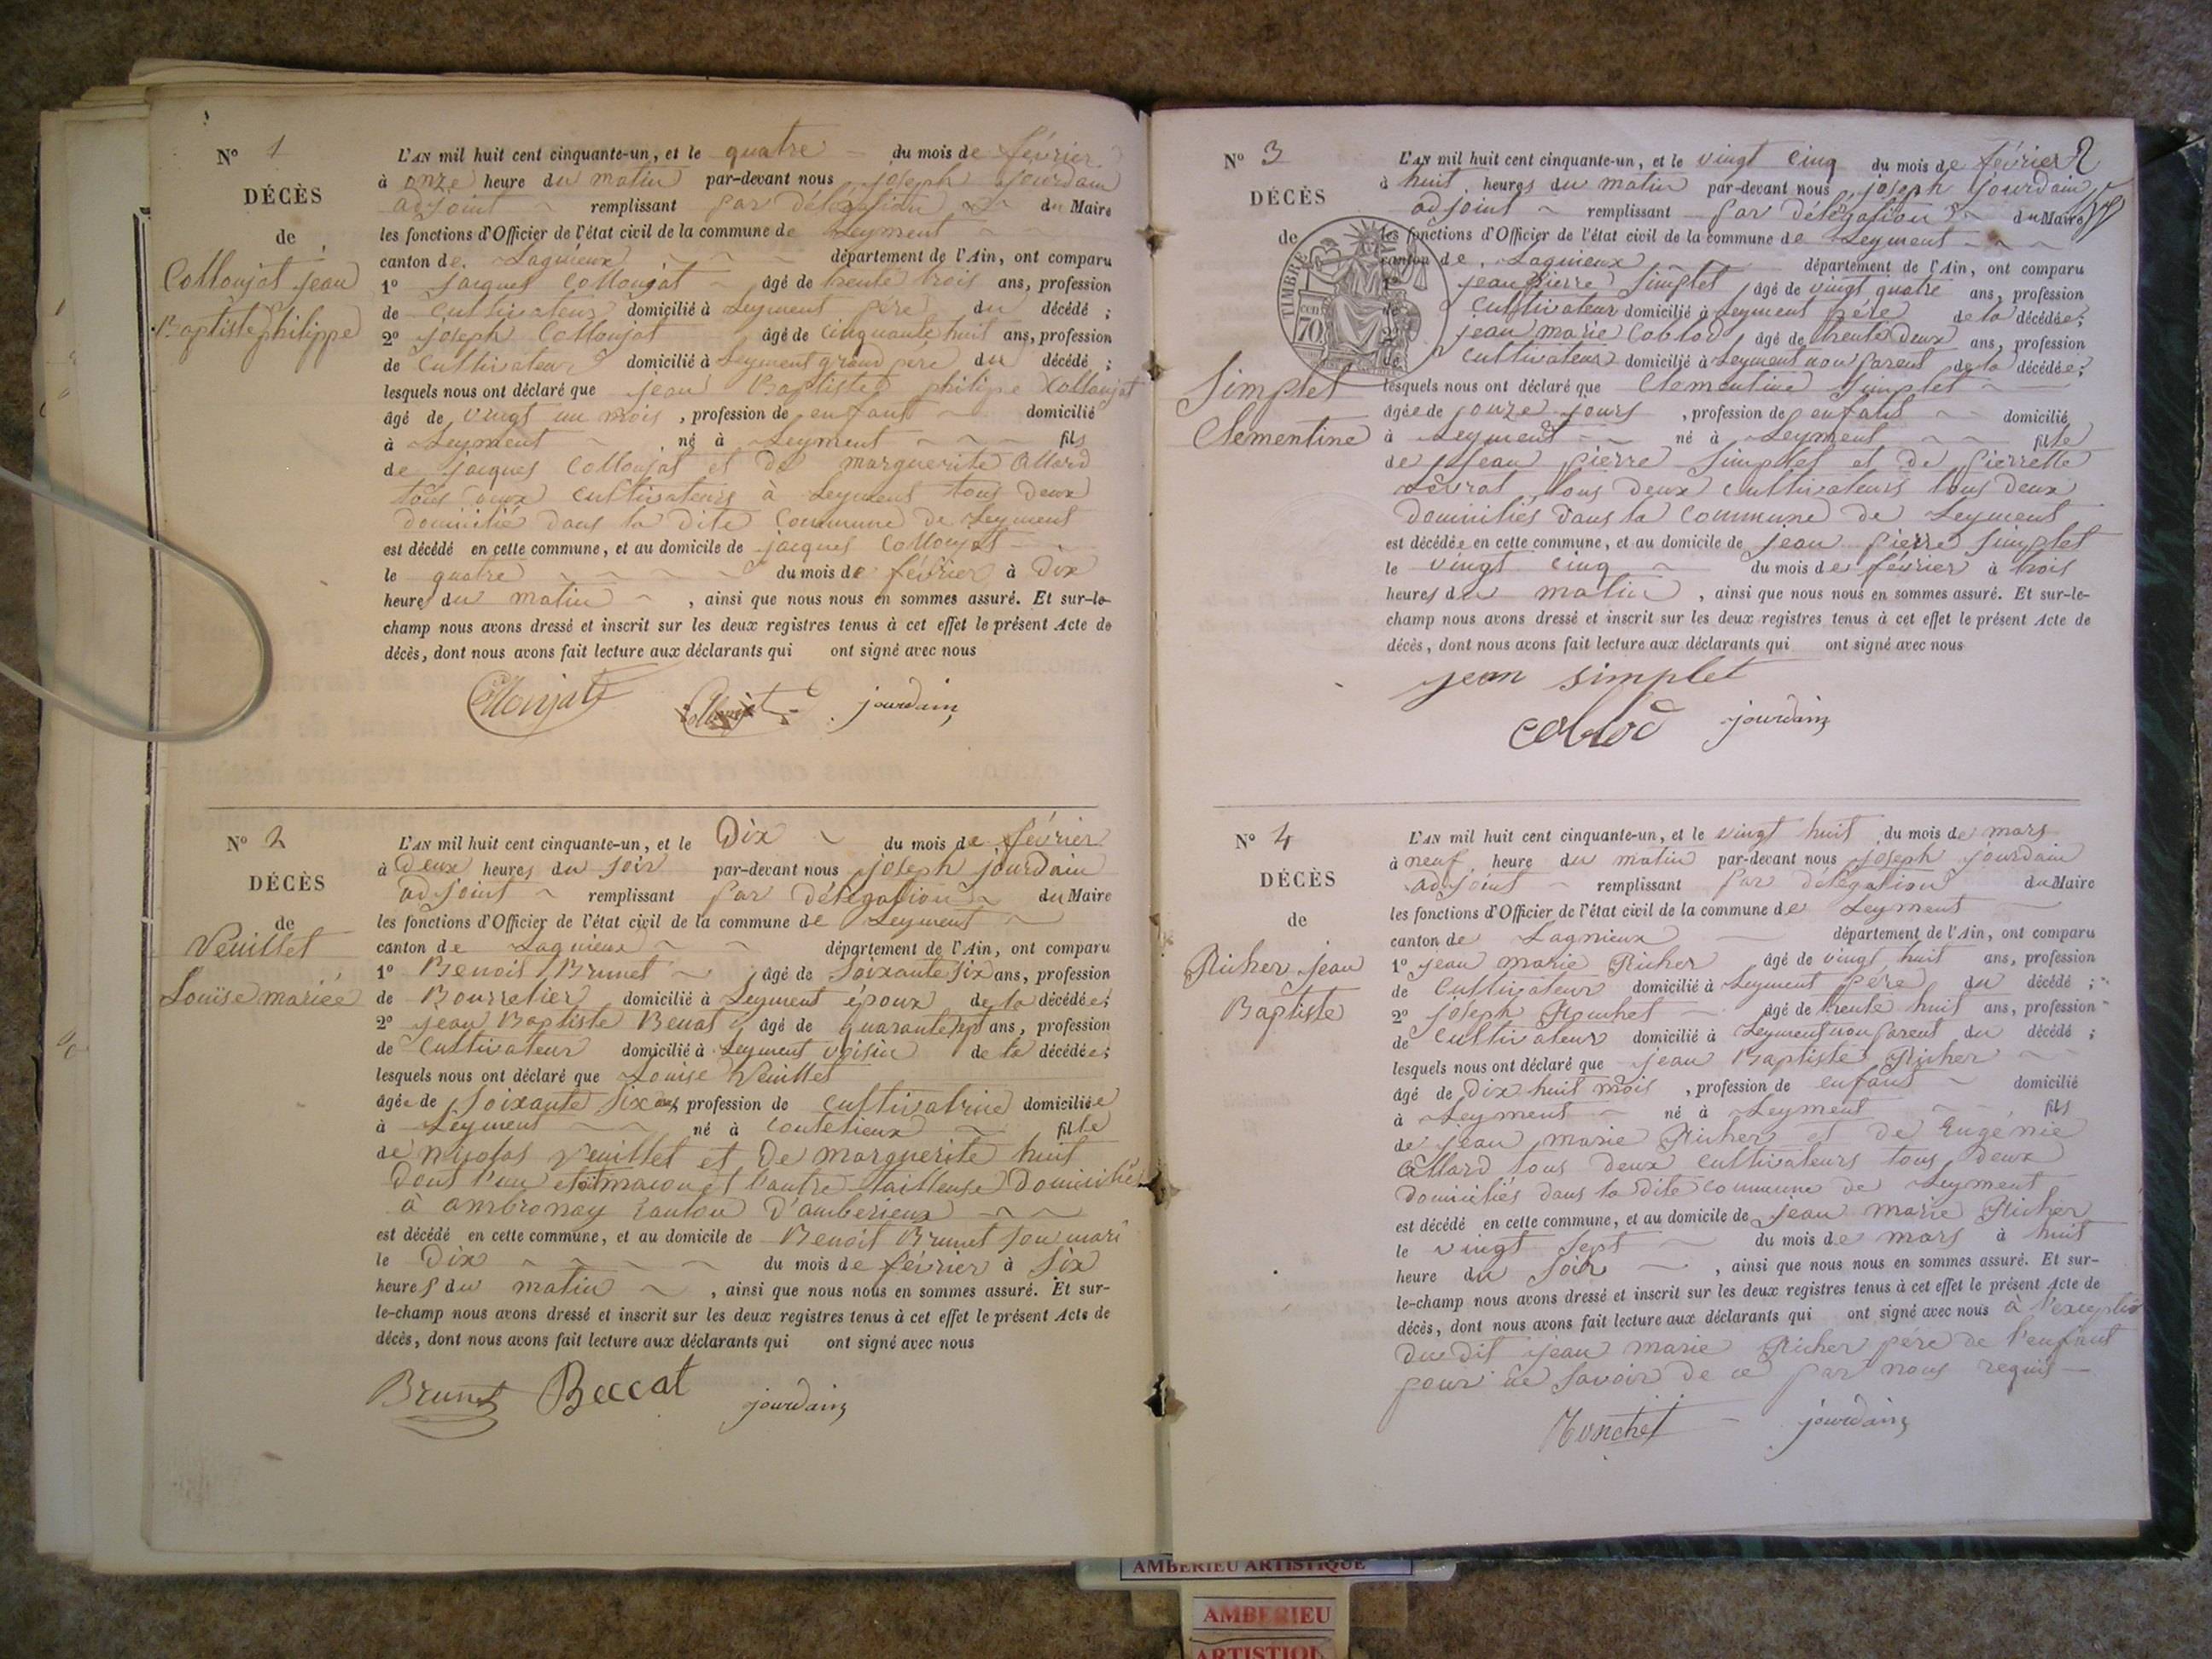 N° 1
DÉCÈS
de
Collonjat jean
Baptiste philippe
L'AN mil huit cent cinquante-un, et le quatre du mois de février
à onze heure du matin par-devant nous joseph jourdain
adjoint remplissant par délégation du Maire
les fonctions d'Officier de l'état civil de la commune de Leyment
canton de Lagnieux département de l'Ain, ont comparu
1° jacques Collonjat âgé de trente trois ans, profession
de Cultivateur domicilié à Leyment père du décédé ;
2° joseph Collonjat âgé de cinquante huit ans, profession
de Cultivateur domicilié à Leyment grand pere du décédé ;
lesquels nous ont déclaré que jean Baptiste philipe Collonjat
âgé de vingt un mois, profession de enfant domicilié
à Leyment né à Leyment fils
de jacques Collonjat et de marguerite Allard
tous deux cultivateurs à Leyment tous deux
domicilié dans la dite commune de Leyment
est décédé en cette commune, et au domicile de jacques Collonjat
le quatre du mois de février à Dix
heures du matin, ainsi que nous nous en sommes assuré. Et sur-le-
champ nous avons dressé et inscrit sur les deux registres tenus à cet effet le présent Acte de
décès, dont nous avons fait lecture aux déclarants qui ont signé avec nous
Collonjat Collonjat jourdain
N° 2
DÉCÈS
de
Veuillet
Louise mariée
L'AN mil huit cent cinquante-un, et le Dix du mois de février
à Deux heures du soir par-devant nous joseph jourdain
adjoint remplissant par délégation du Maire
les fonctions d'Officier de l'état civil de la commune de Leyment
canton de Lagnieux département de l'Ain, ont comparu
1° Benoit Brunet âgé de soixante six ans, profession
de Bourrelier domicilié à Leyment époux de la décédée;
2° jean Baptiste âgé de quarante sept ans, profession
de Cultivateur domicilié à Leyment voisin de la décédée;
lesquels nous ont déclaré que Louise Veuillet
âgée de soixante six ans profession de cultivatrice domiciliée
à Leyment né à fille
de nicolas Veuillet et De marguerite huit
Dont l'un etoit macon et l'autre tailleuse Domiciliés
à ambronay canton D'amberieux
est décédé en cette commune, et au domicile de Benoit Brunet son mari
le Dix du mois de février à Six
heures du matin, ainsi que nous nous en sommes assuré. Et sur-
le-champ nous avons dressé et inscrit sur les deux registres tenus à cet effet le présent Acte de
décès, dont nous avons fait lecture aux déclarants qui ont signé avec nous
Brunet Beccat jourdain
2
N° 3
DÉCÈS
de
TIMBRE
70
Simplet
Clementine
L'AN mil huit cent cinquante-un, et le vingt cinq du mois de février
à huit heures du matin par-devant nous joseph jourdain
adjoint remplissant par délégation du Maire
les fonctions d'Officier de l'état civil de la commune de Leyment
canton de Lagnieux département de l'Ain, ont comparu
jean Pierre Simplet âgé de vingt quatre ans, profession
Cultivateur domicilié à Leyment père de la décédée;
jean marie âgé de trente deux ans, profession
cultivateur domicilié à Leyment non parent de la décédée;
lesquels nous ont déclaré que Clementine Simplet
âgée de jours, profession de enfant domicilié
à Leyment né à Leyment fille
de jean pierre Simplet et de pierrette
tous deux cultivateurs tous deux
Domiciliés dans la commune de Leyment
est décédée en cette commune, et au domicile de jean pierre Simplet
le vingt cinq du mois de février à trois
heures du matin, ainsi que nous nous en sommes assuré. Et sur-le-
champ nous avons dressé et inscrit sur les deux registres tenus à cet effet le présent Acte de
décès, dont nous avons fait lecture aux déclarants qui ont signé avec nous
jean simplet
jourdain
N° 4
DÉCÈS
de
Richer jean
Baptiste
L'AN mil huit cent cinquante-un, et le vingt huit du mois de mars
à neuf heure du matin par-devant nous joseph jourdain
adjoint remplissant par délégation du Maire
les fonctions d'Officier de l'état civil de la commune de Leyment
canton de Lagnieux département de l'Ain, ont comparu
1° jean marie Richer âgé de vingt huit ans, profession
de Cultivateur domicilié à Leyment père du décédé ;
2° joseph Ronchet âgé de trente huit ans, profession
de Cultivateur domicilié à Leyment non parent du décédé ;
lesquels nous ont déclaré que jean Baptiste Richer
âgé de Dix huit mois, profession de enfant domicilié
à Leyment né à Leyment fils
de jean marie Richer et de Eugénie
Allard tous deux cultivateurs tous deux
domiciliés dans la dite commune de Leyment
est décédé en cette commune, et au domicile de jean marie Richer
le vingt sept du mois de mars à huit
heure du soir, ainsi que nous nous en sommes assuré. Et sur-
le-champ nous avons dressé et inscrit sur les deux registres tenus à cet effet le présent Acte de
décès, dont nous avons fait lecture aux déclarants qui ont signé avec nous à l'exception
du dit jean marie Richer père de l'enfant
pour ne savoir de ce par nous requis
Ronchet jourdain
AMBERIEU ARTISTIQUE
AMBERIEU
ARTISTIQUE